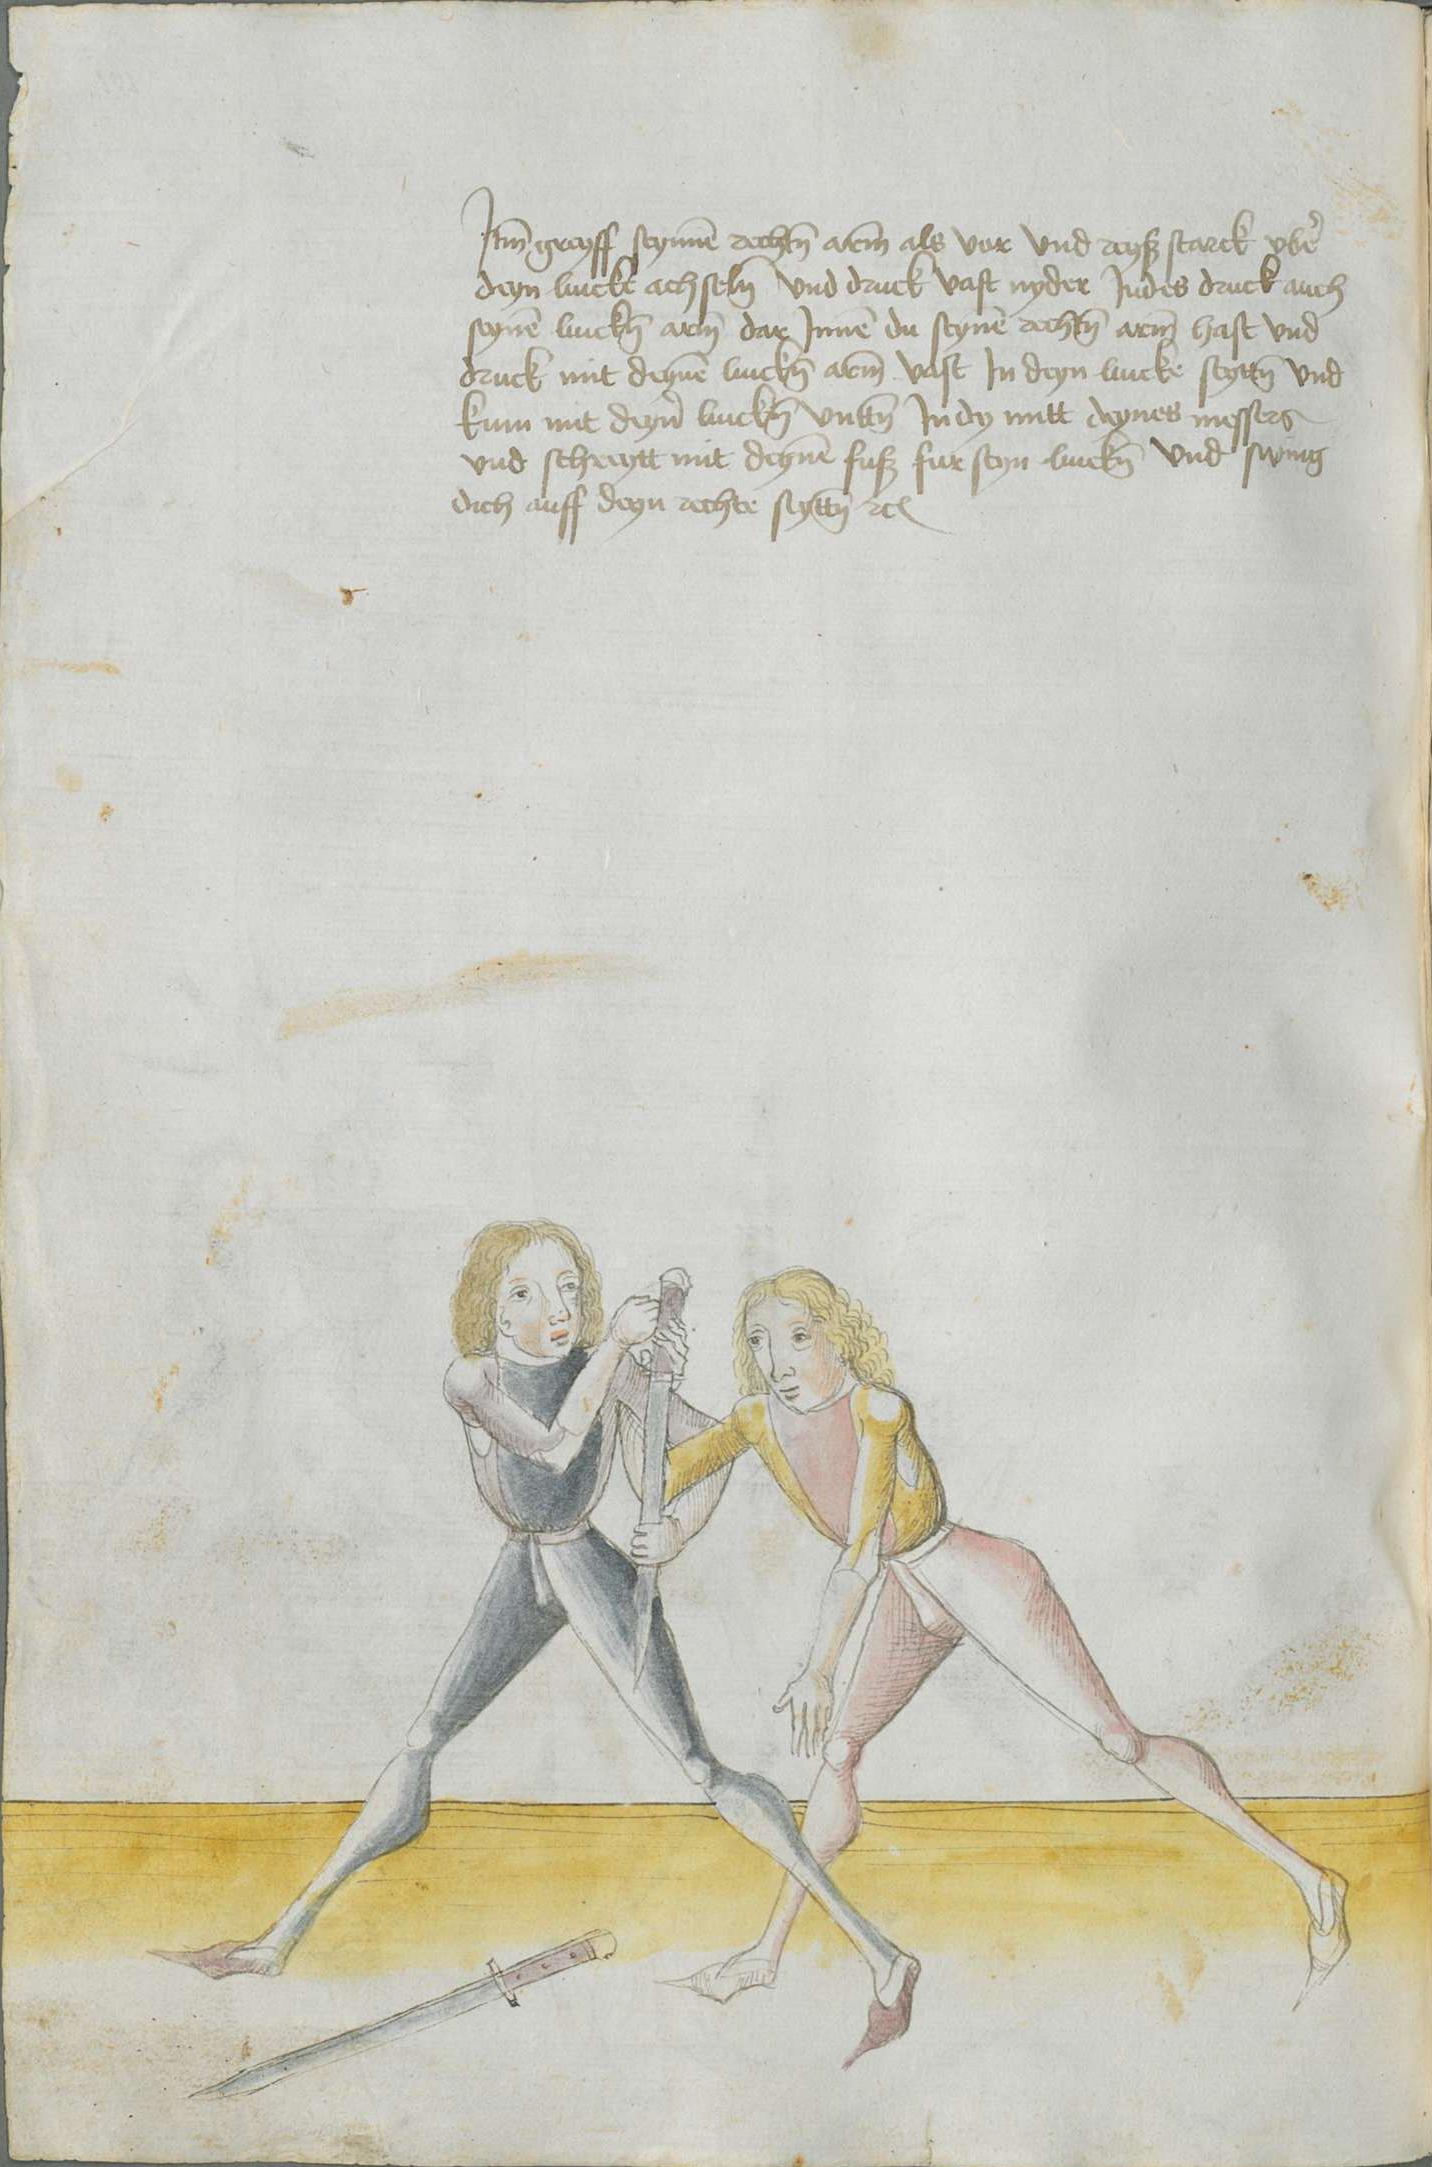 Itm̄ greyff seynnē rechtn̄ arm̄ als vor vnd reyß starck vber̄
deyn lincke achseln̄ vnd druck vast nyder Indes druck auch
seynē linckn̄ arm̄ dar Innē du seynē rechtn̄ arm̄ hast vnd
druck mit deynē linckn̄ arm̄ vast In deyn lincke seyttn̄ vnd
kum mit deyn̄ linckn̄ vnttn̄ In dy mitt deynes messers
vnd schreytt mit deynē fuß fur seyn linckn̄ vnd swing
dich auff deyn rechte seyttn̄ rc